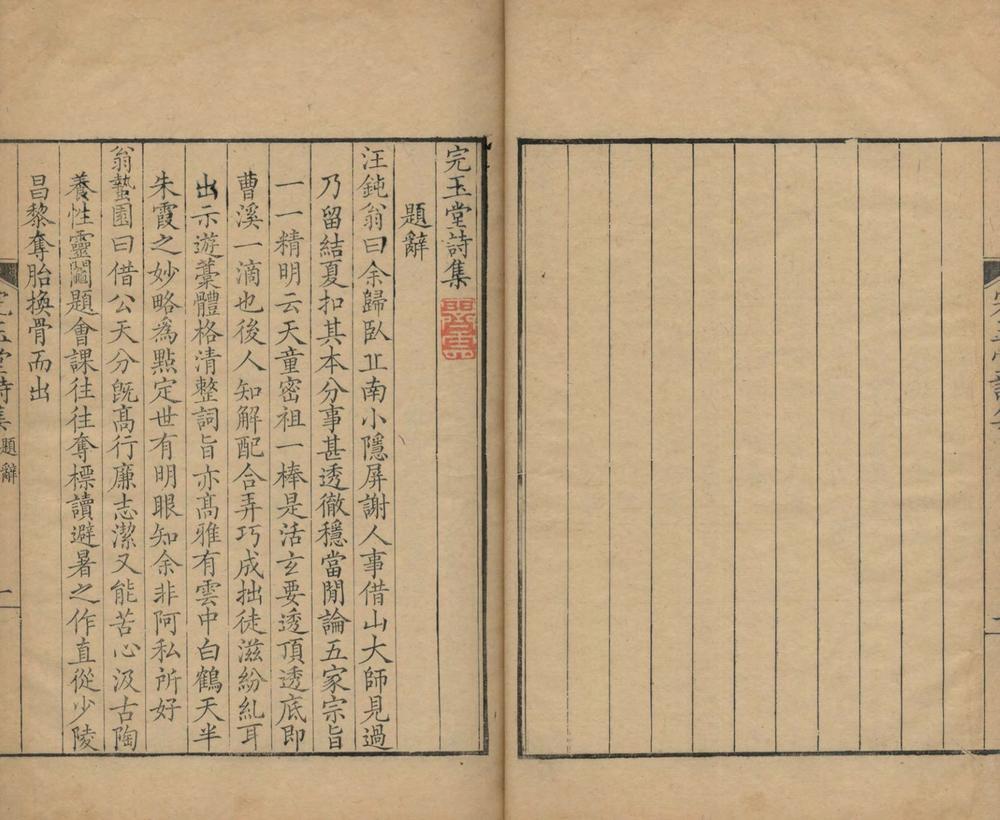 完玉堂詩集
題辭
汪鈍翁曰余歸臥丠南小隱屏謝人事借山大師見過
乃留結夏扣其本分事甚透徹穩當閒論五家宗旨
一一精明云天童密祖一棒是活玄要透頂透底即
曹溪一滴也後人知解配合弄巧成拙徒滋紛糺耳
出示遊藁體格清整詞旨亦髙雅有雲中白鶴天半
朱霞之妙略爲點定世有明眼知余非阿私所好
翁蟄園曰借公天分旣髙行廉志潔又能苦心汲古陶
養性靈鬮題會課往往奪標讀避暑之作直從少陵
昌黎奪胎換骨而出
完玉堂詩集 題辭 一